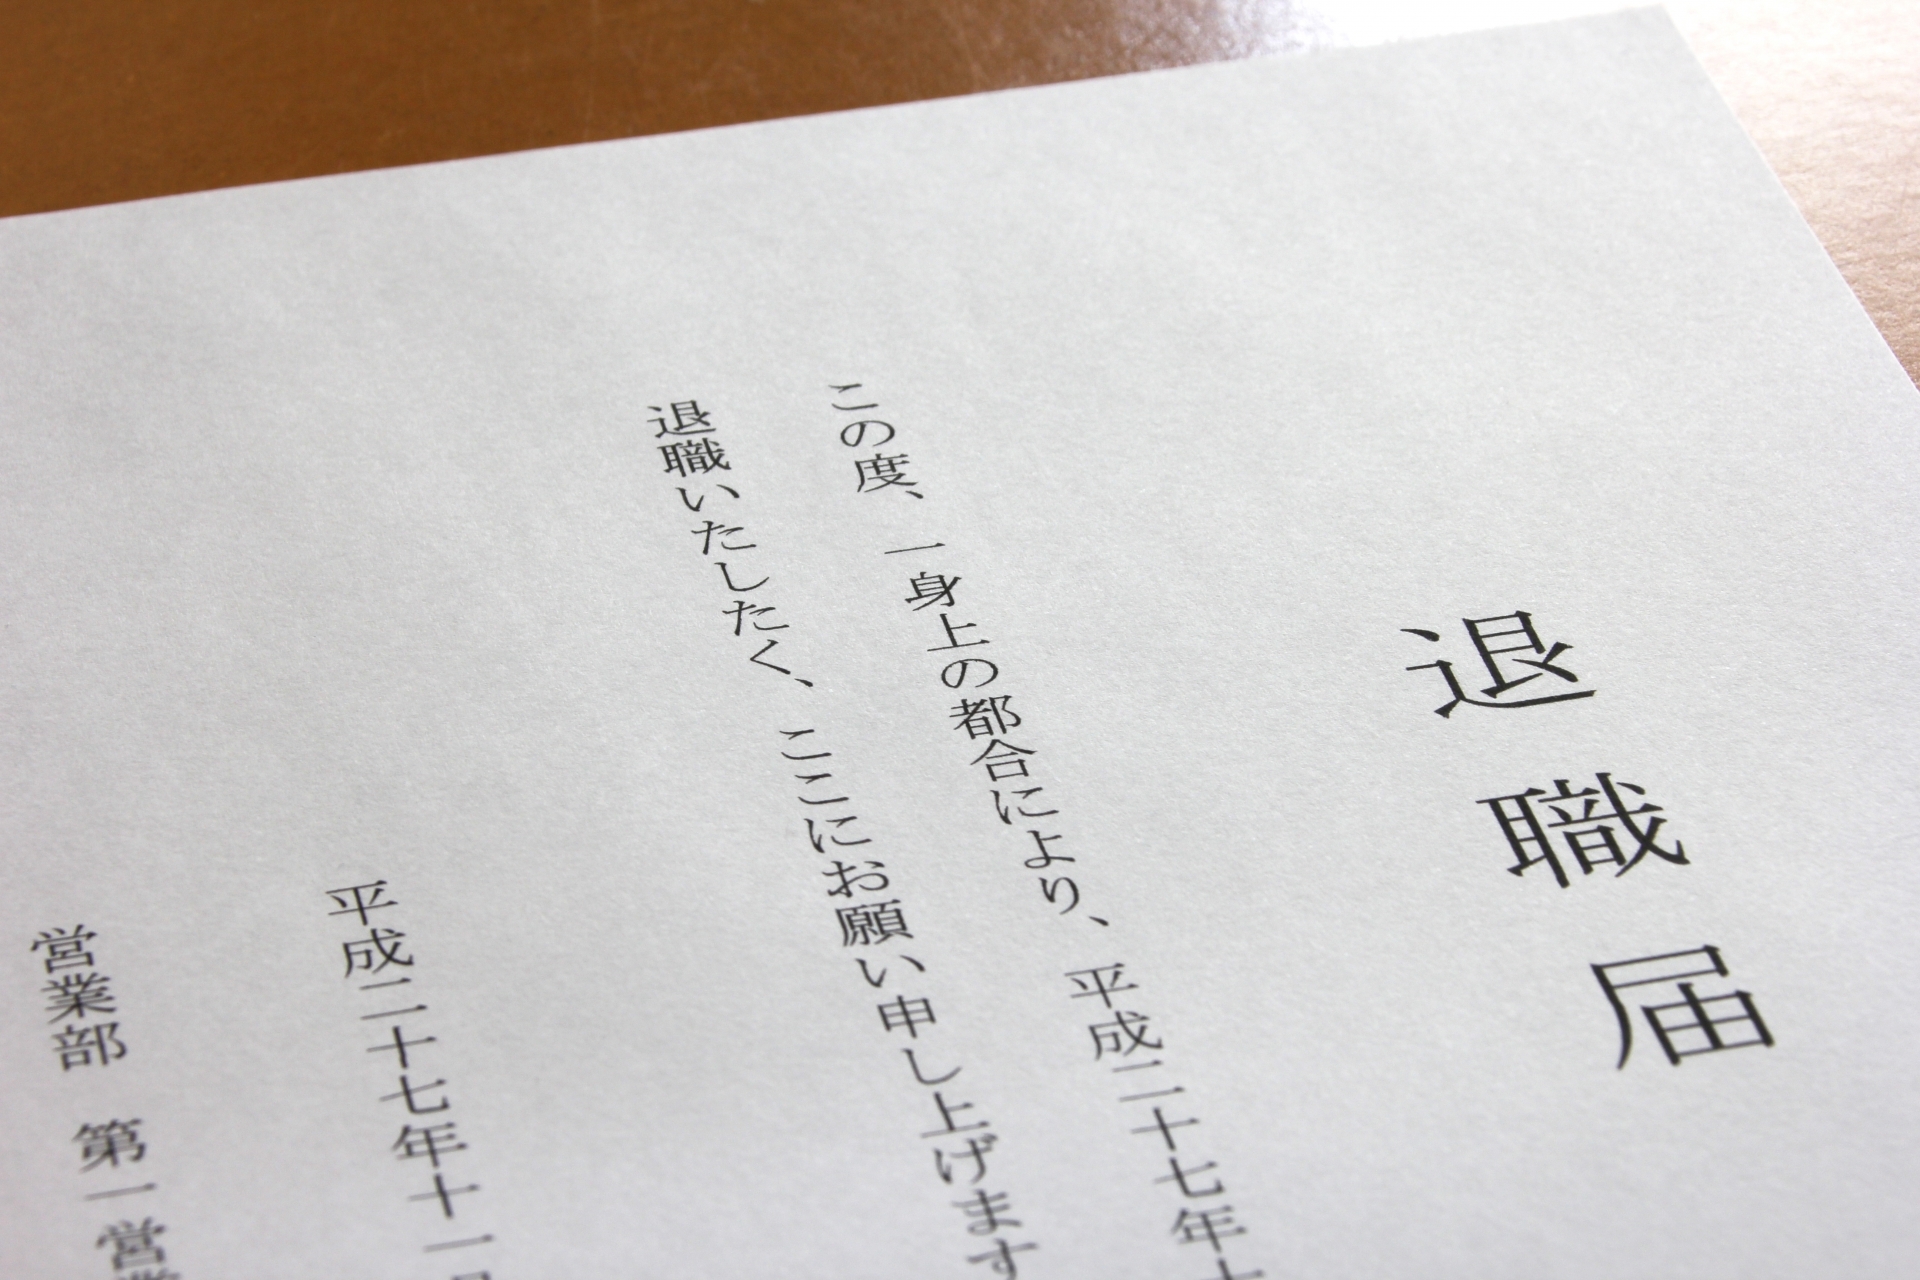 退職届
この度、一身上の都合により、平成二十七年十
退職いたしたく、ここにお願い申し上げます
平成二十七年十一月
営業部　第一営業